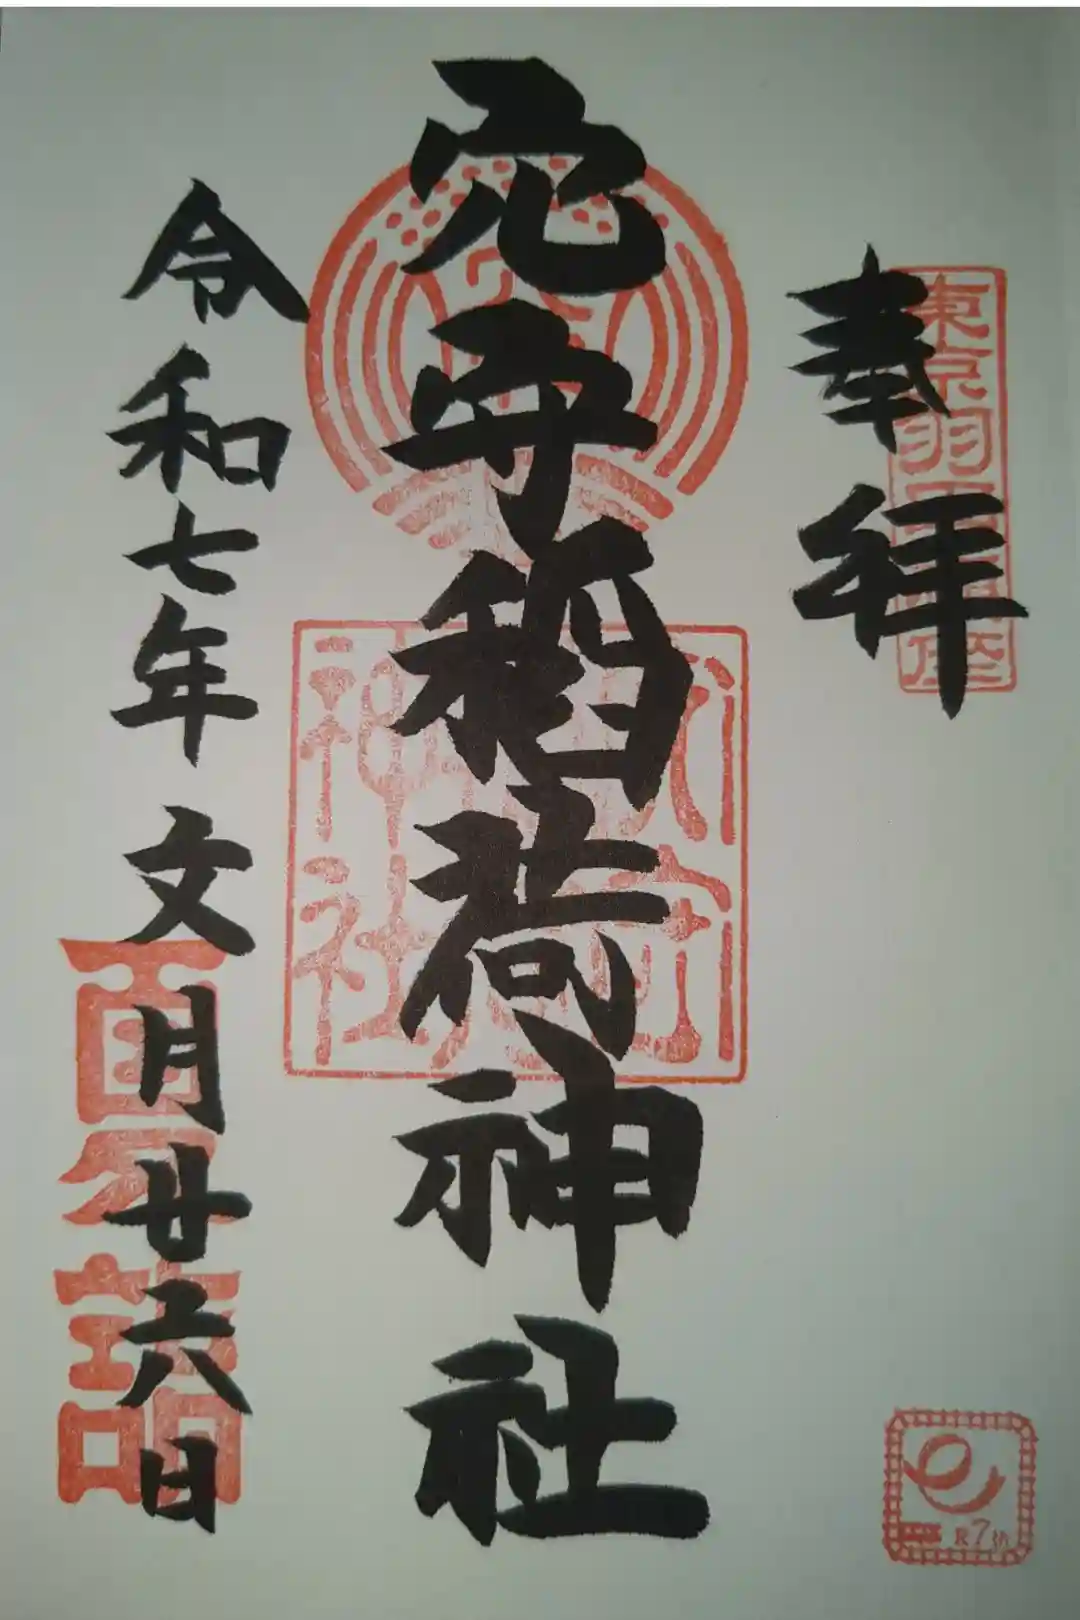 奉拝
東京羽田鎮座
穴守稲荷神社
穴守
稲荷
神社
令和七年 文月廿六日
夏詣
R7